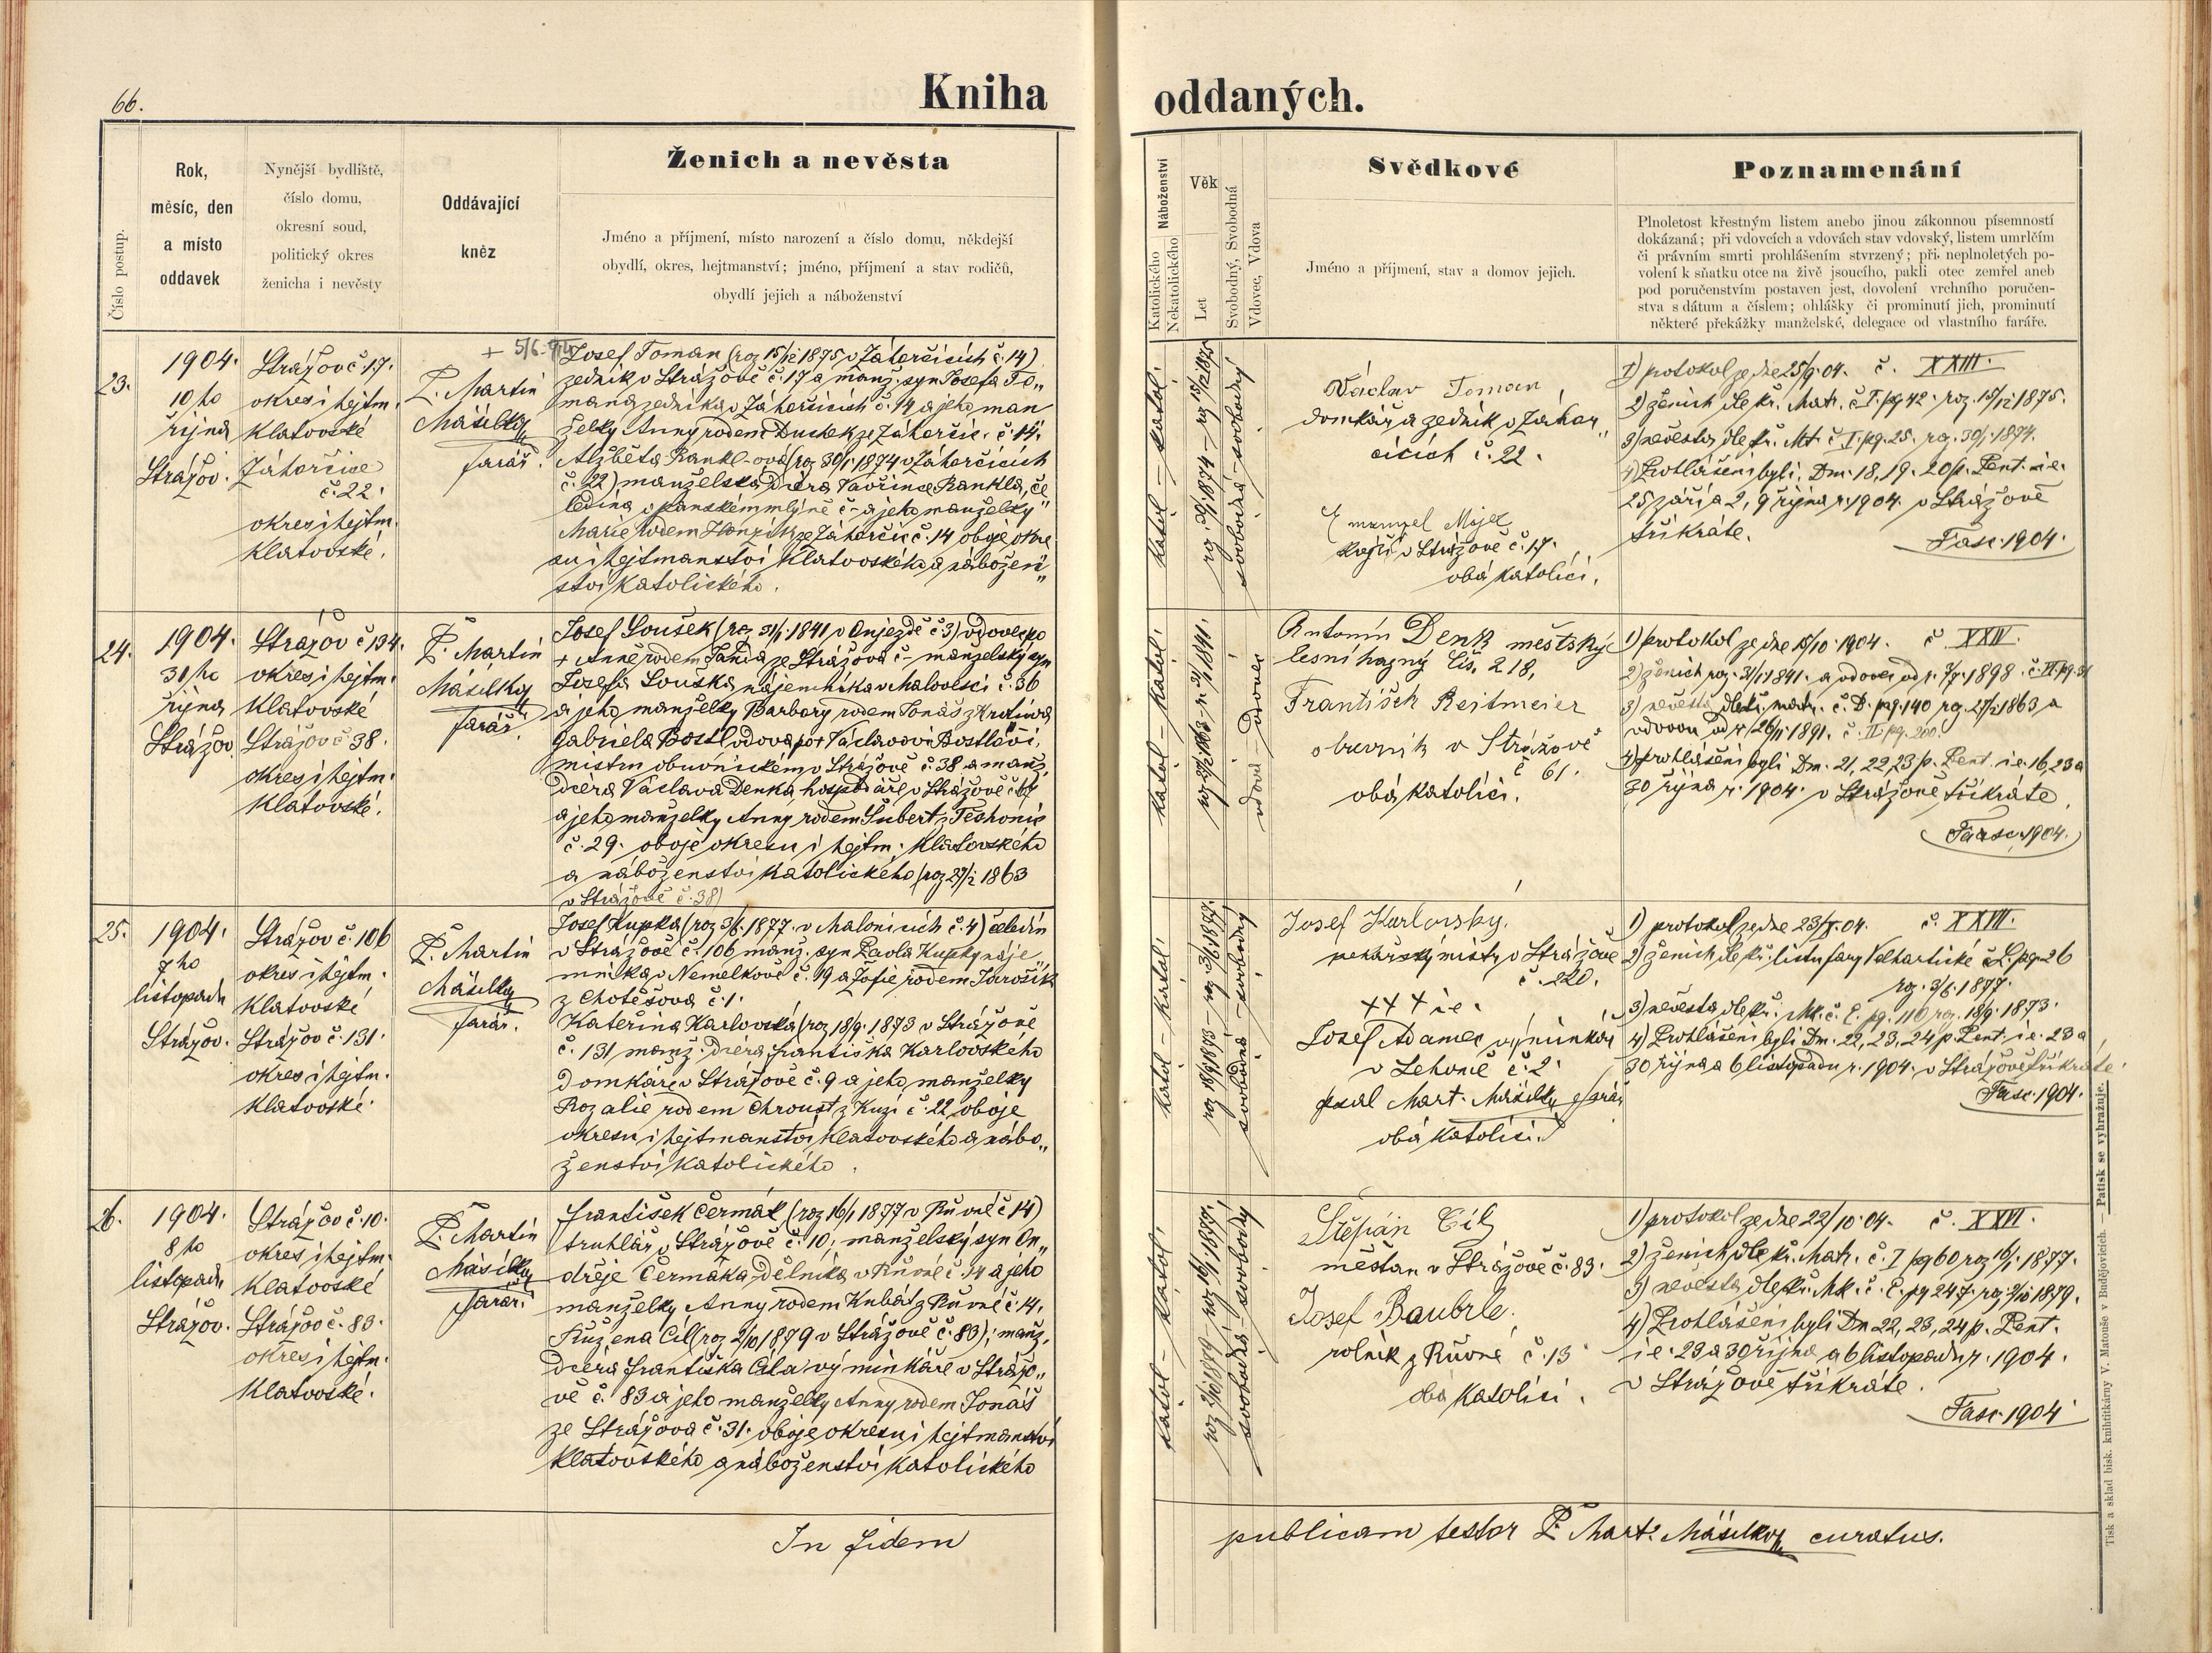 66.
Kniha oddaných.
Číslo postup.
Rok,
měsíc, den
a místo
oddavek
Nynější bydliště,
číslo domu,
okresní soud,
politický okres
ženicha i nevěsty
Oddávající
kněz
Ženich a nevěsta
Jméno a příjmení, místo narození a číslo domu, někdejší
obydlí, okres, hejtmanství; jméno, příjmení a stav rodičů,
obydlí jejich a náboženství
Náboženství
Katolického
Nekatolického
Věk
Let
Svobodný, Svobodná
Vdovec, Vdova
Svědkové
Jméno a příjmení, stav a domov jejich.
Poznamenání
Plnoletost křestným listem anebo jinou zákonnou písemností
dokázaná; při vdovcích a vdovách stav vdovský, listem umrlčím
či právním smrti prohlášením stvrzený; při neplnoletých po-
volení k sňatku otce na živě jsoucího, pakli otec zemřel aneb
pod poručenstvím postaven jest, dovolení vrchního poručen-
stva s dátum a číslem; ohlášky či prominutí jich, prominutí
některé překážky manželské, delegace od vlastního faráře.
23.
1904.
10ho
října
Strážov.
Strážov č 17.
okres i hejtm.
Klatovské
Záhorčice
č. 22.
okres i hejtm.
Klatovské.
P. Martin
Másílko
farář.
Josef Toman (roz 15/12 1875 v Záhorčicích č. 14)
zedník v Strážově č. 17 a manž. syn Josefa To„
mana zedníka v Záhorčicích č. 14 a jeho man
želky Anny rodem Duchek ze Záhorčic č. 14.
Alžběta Rankl-ová (roz 30/1 1874 v Záhorčicích
č. 22) manželská dcera Vavřince Rankla, če
ledína v panském mlýně č - a jeho manželky
Marie rodem Honzík ze Záhorčic č. 14 oboje okre
su i hejtmanství Klatovského a nábožen„
ství katolického.
katol. - katol.
roz 30/1 1874 - roz 15/12 1875
svobodná - svobodný
Václav Toman
domkář a zedník v Záhor„
čicích č. 22.
Emanuel Majer
krejčí v Strážově č. 17.
obá katolíci.
1) protokol ze dne 25/9 04. č. XXIII.
2) ženich dle kř. Matr. č I. pg 42. roz. 15/12 1875.
3) nevěsta dle kř. Mt. č I. pg. 25. roz. 30/1 1874.
4) Prohlášeni byli. Dm. 18, 19. 20 p. Pent. i.e.
25 září a 2, 9 října r. 1904. v Strážově
třikráte.
Fasc. 1904.
24.
1904.
31ho
října
Strážov
Strážov č 134.
okres i hejtm.
Klatovské
Strážov č 38.
okres i hejtm.
Klatovské.
P. Martin
Másílko
farář.
Josef Soušek (roz 31/1 1841 v Onjezdě č 3) vdovec po
+ Anně rodem Janda ze Strážova č - manželský syn
Josefa Souška, nájemníka v Malovesci č. 36
a jeho manželky Barbory rodem Tomáš z Krotiva
Gabriela Bostl vdova po + Václavovi Bostlovi,
mistru obuvnickém v Strážově č. 38 a manž.
dcera Václava Denka, hospodáře v Strážově č 67
a jeho manželky Anny rodem Šubert z Těšhonic
č. 29. oboje okresu i hejtm. Klatovského
a náboženství katolického (roz 27/2 1863
v Strážově č. 38)
katol - katol.
roz 27/2 1863 - r. 31/1 1841.
vdova - vdovec
Antonín Denk městský
lesní hajný čís. 218,
František Reitmeier
obuvník v Strážově
č 61.
obá katolíci.
1) protokol ze dne 15/10 1904. č XXIV.
2) ženich roz. 31/1 1841. a vdovec od r. 3/7 1898.
3) nevěsta dle kř. matr. č. D. pg. 140 roz. 27/2 1863 a
vdovou od r. 26/11 1891. č. II pg. 200.
4) prohlášeni byli Dm. 21, 22, 23 p. Pent. i.e. 16, 23 a
30 října r. 1904. v Strážově třikráte.
Faasc. 1904.
25.
1904.
7ho
listopadu
Strážov.
Strážov č. 106
okres i hejtm.
Klatovské
Strážov č. 131.
okres i hejtm.
Klatovské.
P. Martin
Másílko
farář.
Josef Kupka (roz 3/6 1877. v Malonicích č. 4) čeledín
v Strážově č. 106 manž. syn Pavla Kupky náje„
mníka v Nemelkově č. 19 a Žofie rodem Jarošík
z Chotěšova č. 1.
Kateřina Karlovská (roz 18/9 1873 v Strážově
č. 131 manž. dcera Františka Karlovského
domkáře v Strážově č. 9 a jeho manželky
Rozalie rodem Chroust z Kuzí č. 22, oboje
okresu i hejtmanství Klatovského a nábo„
ženství katolického.
katol - katol.
roz 18/9 1873 - roz 3/6 1877.
svobodná - svobodný
Josef Karlovský.
pekařský mistr v Strážově
č. 220.
+++ i.e.
Josef Adamec výminkář
v Lehomě č. 2.
psal Mart. Másílko farář
obá katolíci.
1) protokol ze dne 23/X 04. č. XXIII.
2) ženich dle kř. listu fary Velhartické č L. pg. 26
roz. 3/6 1877.
3) nevěsta dle kř. Mk. č. E. pg. 116 roz. 18/9 1873.
4) Prohlášeni byli Dm. 22, 23, 24 p. Pent. i.e. 23 a
30 října a 6 listopadu r. 1904. v Strážově třikráte.
Fasc. 1904.
26.
1904.
8ho
listopadu
Strážov.
Strážov č. 10.
okres i hejtm.
Klatovské
Strážov č. 83.
okres i hejtm.
Klatovské.
P. Martin
Másílko
farář.
František Čermák (roz 16/1 1877 v Růvné č 14)
truhlář v Strážově č. 10, manželský syn On„
dřeje Čermáka, dělníka v Růvné č. 14 a jeho
manželky Anny rodem Kubát z Růvné č. 14.
Růžena Cíl (roz 2/10 1879 v Strážově č. 83), manž.
dcera Františka Cíla výminkáře v Strážo„
vě č. 83 a jeho manželky Anny rodem Tomáš
ze Strážova č. 31. oboje okresu i hejtmanství
Klatovského a náboženství katolického
katol - katol.
roz 2/10 1879 - roz 16/1 1877.
svobodná svobodný
Štěpán Cíl
měšťan v Strážově č. 83.
Josef Baubrle
rolník z Růvné č. 13
obá katolíci.
1) protokol ze dne 22/10 04. č. XXVI.
2) ženich dle kř. Matr. č. I pg 60 roz 16/1 1877.
3) nevěsta dle kř. Mk. č. E. pg 247. roz. 2/10 1879.
4) Prohlášeni byli Dm 22, 23, 24 p. Pent.
i.e. 23 a 30 října a 6 listopadu r. 1904.
v Strážově třikráte.
Fasc. 1904
In fidem publicam testor P. Mart. Másílko curatus.
Tisk a sklad bisk. knihtiskárny V. Matouše v Budějovicích. — Patisk se vyhražuje.